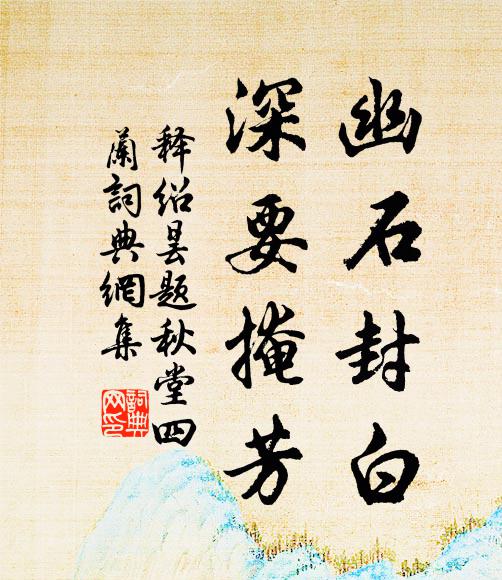 幽石封白
深要掩芳
释绍昙题秋堂四
蘭詞典網集
詞典
网印